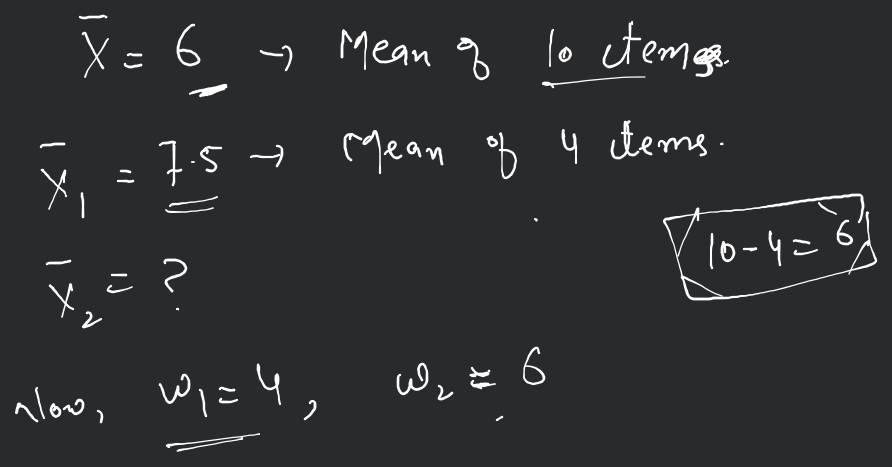 X̄ = 6 → Mean of 10 items.
X̄₁ = 7.5 → Mean of 4 items.
10-4=6
X̄₂ = ?
Now, W₁=4, W₂ = 6